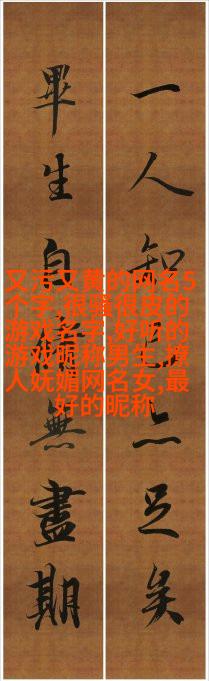 一人知亦足矣
畢生自無盡期
又污又黄的网名5
个字,很骚很皮的
游戏名字,好听的
游戏昵称男生,撩
人妩媚网名女,最
好的昵称